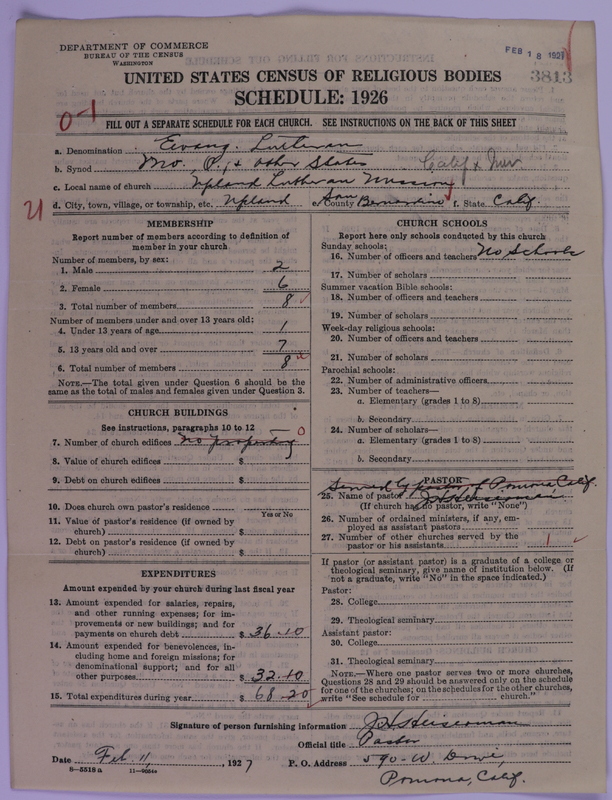 DEPARTMENT OF COMMERCE
BUREAU OF THE CENSUS
WASHINGTON
FEB 18 1927
3813
UNITED STATES CENSUS OF RELIGIOUS BODIES
SCHEDULE: 1926
0-1
FILL OUT A SEPARATE SCHEDULE FOR EACH CHURCH. SEE INSTRUCTIONS ON THE BACK OF THIS SHEET
a. Denomination Evang. Lutheran
b. Synod Mo. O., & other States Calif & Nev
c. Local name of church Upland Lutheran Mission
21
d. City, town, village, or township, etc. Upland e. County San Bernardino f. State Calif.
MEMBERSHIP
Report number of members according to definition of member in your church
Number of members, by sex:
1. Male 2
2. Female 6
3. Total number of members 8
Number of members under and over 13 years old:
4. Under 13 years of age 1
5. 13 years old and over 7
6. Total number of members 8
NOTE.—The total given under Question 6 should be the same as the total of males and females given under Question 3.
CHURCH BUILDINGS
See instructions, paragraphs 10 to 12
7. Number of church edifices no property 0
8. Value of church edifices $
9. Debt on church edifices $
10. Does church own pastor's residence
Yes or No
11. Value of pastor's residence (if owned by church) $
12. Debt on pastor's residence (if owned by church) $
EXPENDITURES
Amount expended by your church during last fiscal year
13. Amount expended for salaries, repairs, and other running expenses; for improvements or new buildings; and for payments on church debt $ 36.10
14. Amount expended for benevolences, including home and foreign missions; for denominational support; and for all other purposes $ 32.10
15. Total expenditures during year $ 68.20
CHURCH SCHOOLS
Report here only schools conducted by this church
Sunday schools:
16. Number of officers and teachers No Schools
17. Number of scholars
Summer vacation Bible schools:
18. Number of officers and teachers
19. Number of scholars
Week-day religious schools:
20. Number of officers and teachers
21. Number of scholars
Parochial schools:
22. Number of administrative officers
23. Number of teachers—
a. Elementary (grades 1 to 8)
b. Secondary
24. Number of scholars—
a. Elementary (grades 1 to 8)
b. Secondary
PASTOR
Served by pastor of Pomona Calif.
25. Name of pastor
(If church has no pastor, write "None")
26. Number of ordained ministers, if any, employed as assistant pastors
27. Number of other churches served by the pastor or his assistants 1
If pastor (or assistant pastor) is a graduate of a college or theological seminary, give name of institution below. (If not a graduate, write "No" in the space indicated.)
Pastor:
28. College
29. Theological seminary
Assistant pastor:
30. College
31. Theological seminary
NOTE.—Where one pastor serves two or more churches, Questions 28 and 29 should be answered only on the schedule for one of the churches; on the schedules for the other churches, write "See schedule for church."
Signature of person furnishing information
Official title Pastor
Date Feb. 11, 1927 P. O. Address 590-W.
Pomona, Calif.
8-5518a 11-9054